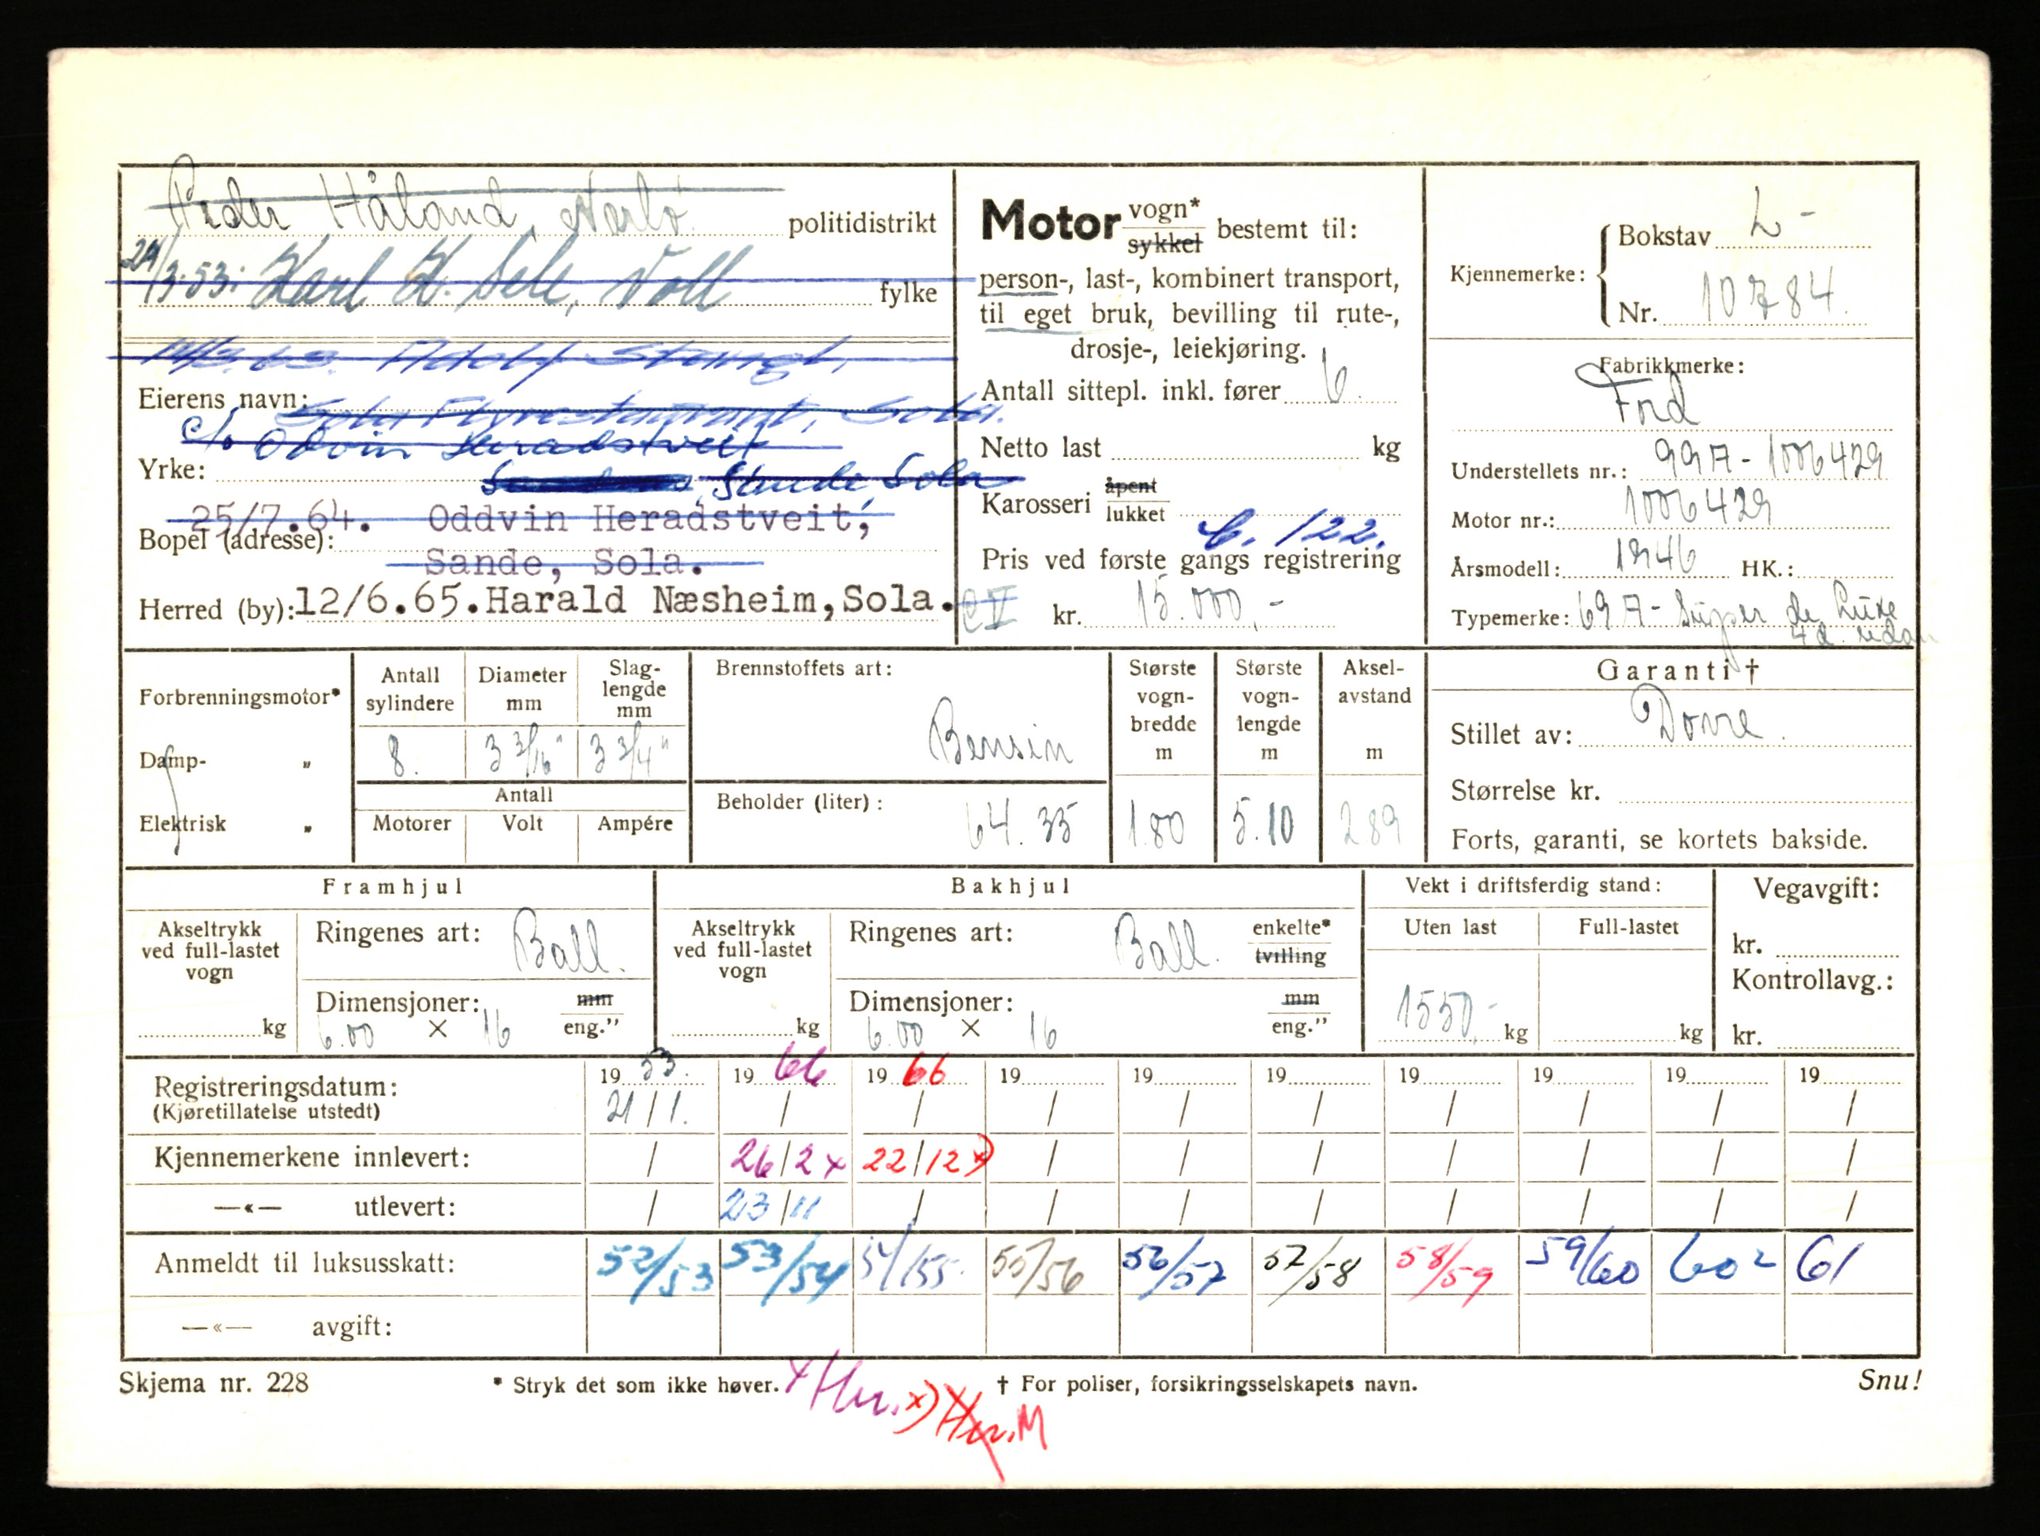 Peder Håland, Nærbø politidistrikt
24/3.53. Karl K. Sele, Voll fylke
Adolf Stengl,
Eierens navn: Sola Flyrestaurant, Sola.
c/o Odvin Heradstveit
Yrke: Sande, Sola
25/7.64. Oddvin Heradstveit,
Bopel (adresse):
Sande, Sola.
Herred (by): 12/6.65. Harald Næsheim, Sola.
Motor vogn* sykkel bestemt til:
person-, last-, kombinert transport,
til eget bruk, bevilling til rute-,
drosje-, leiekjøring.
Antall sittepl. inkl. fører 6.
Netto last kg
Karosseri åpent lukket
C. 122.
Pris ved første gangs registrering
kr. 15.000,-
Kjennemerke: Bokstav L-
Nr. 10784.
Fabrikkmerke:
Ford
Understellets nr.: 99A-1006429
Motor nr.: 1006429
Årsmodell: 1946 HK.:
Typemerke: 69A- Super de Luxe
4 d. sedan
Forbrenningsmotor*
Damp- „
Elektrisk „
Antall sylindere
8.
Diameter mm
3 3/16"
Slag-lengde mm
3 3/4"
Antall
Motorer Volt Ampére
Brennstoffets art:
Bensin
Beholder (liter):
64.35
Største vogn-bredde m
1.80
Største vogn-lengde m
5.10
Aksel-avstand m
289
Garanti †
Stillet av: Dovre.
Størrelse kr.
Forts, garanti, se kortets bakside.
Framhjul
Akseltrykk ved full-lastet vogn
kg
Ringenes art: Ball.
Dimensjoner: mm eng."
6.00 × 16
Bakhjul
Akseltrykk ved full-lastet vogn
kg
Ringenes art: Ball. enkelte* tvilling
Dimensjoner: mm eng."
6.00 × 16
Vekt i driftsferdig stand:
Uten last Full-lastet
1550,- kg kg
Vegavgift:
kr.
Kontrollavg.:
kr.
Registreringsdatum: 19 53. 19 66 19 66 19 19 19 19 19 19 19
(Kjøretillatelse utstedt) 21/1. / / / / / / / / /
Kjennemerkene innlevert: / 26/2 x 22/12 x) / / / / / / /
—«— utlevert: / 23/11 / / / / / / / /
Anmeldt til luksusskatt: 52/53 53/54 54/55. 55/56 56/57 57/58 58/59 59/60 60² 61
—«— avgift:
Skjema nr. 228 * Stryk det som ikke høver. x Hvr. x) Hvr. M † For poliser, forsikringsselskapets navn. Snu!